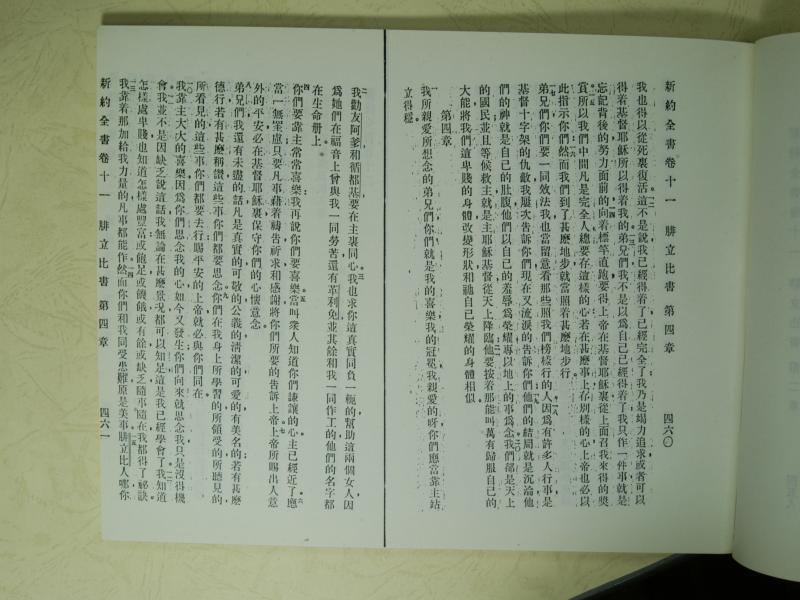 新約全書卷十一 腓立比書 第四章 四六〇
我也得以從死裏復活這不是說我已經得着了已經完全了我乃是竭力追求或者可以
得着基督耶穌所以得着我的弟兄們我不是以爲自己已經得着了我只作一件事就是
忘記背後的努力面前的向着標竿直跑要得上帝在基督耶穌裏從上面召我來得的獎
賞所以我們中間凡是完全人總要存這樣的心若在甚麼事上存別樣的心上帝也必以
此指示你們然而我們到了甚麼地步就當照着甚麼地步行
弟兄們你們要一同效法我也當留意看那些照我們榜樣行的人因爲有許多人行事是
基督十字架的仇敵我屢次告訴你們現在又流淚的告訴你們他們的結局就是沉淪他
們的神就是自己的肚腹他們以自己的羞辱爲榮耀專以地上的事爲念我們卻是天上
的國民並且等候救主就是主耶穌基督從天上降臨他要按着那能叫萬有歸服自己的
大能將我們這卑賤的身體改變形狀和祂自己榮耀的身體相似
第四章
我所親愛所想念的弟兄們你們就是我的喜樂我的冠冕我親愛的呀你們應當靠主站
立得穩
我勸友阿爹和循都基要在主裏同心我也求你這真實同負一軛的幫助這兩個女人因
爲她們在福音上曾與我一同勞苦還有革利免並其餘和我一同作工的他們的名字都
在生命册上
你們要靠主常常喜樂我再說你們要喜樂當叫衆人知道你們謙讓的心主已經近了應
當一無罣慮只要凡事藉着禱告祈求和感謝將你們所要的告訴上帝上帝所賜出人意
外的平安必在基督耶穌裏保守你們的心懷意念
弟兄們我還有未盡的話凡是真實的可敬的公義的清潔的可愛的有美名的若有甚麼
德行若有甚麼稱讚這些事你們都要思念你們在我身上所學習的所領受的所聽見的
所看見的這些事你們都要去行賜平安的上帝就必與你們同在
我靠主大大的喜樂因爲你們思念我的心如今又發生你們向來就思念我只是沒得機
會我並不是因缺乏說這話我無論在甚麼景況都可以知足這是我已經學會了我知道
怎樣處卑賤也知道怎樣處豐富或飽足或饑餓或有餘或缺乏隨事隨在我都得了祕訣
我靠着那加給我力量的凡事都能作然而你們和我同受患難原是美事腓立比人哪你
新約全書卷十一 腓立比書 第四章 四六一